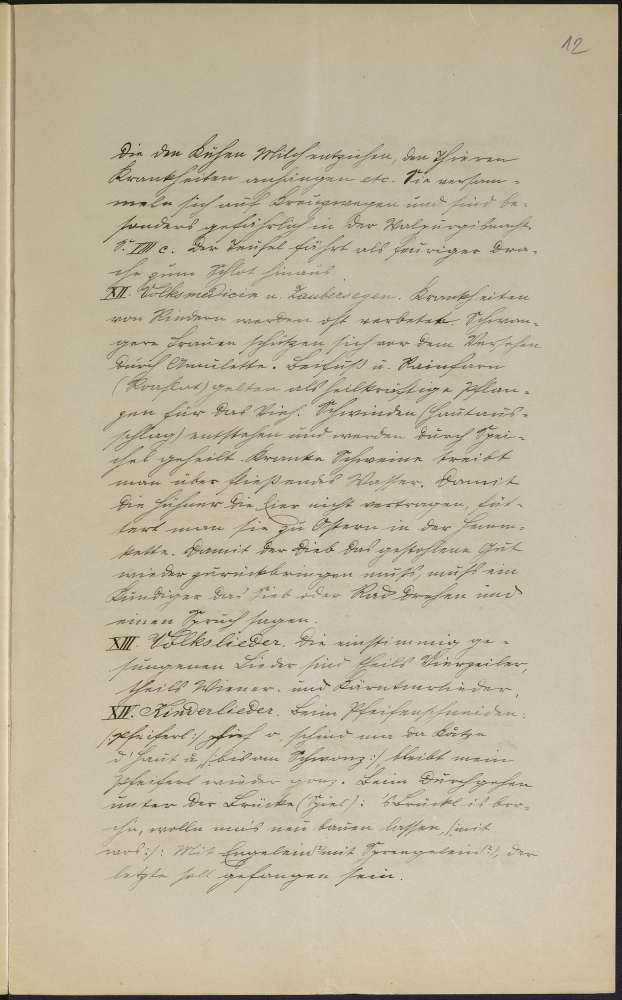 12
die den Kühen Milch entziehen, den Thieren
Krankheiten anhängen etc. Sie versam-
meln sich auf Kreuzwegen und sind be-
sonders gefährlich in der Walpurgisnacht.
S. VIII c. Der Teufel fährt als feuriger Dra-
che zum Schlot hinaus.
XII. Volksmedicin u. Zaubersegen. Krankheiten
von Kindern werden oft verbetet. Schwan-
gere Frauen schützen sich vor dem Versehen
durch Amulette. Beifuß u. Rainfarn
gelten als heilkräftige Pflan-
zen für das Vieh. Schwinden (Hautaus-
schlag) entstehen und werden durch Spei-
chel geheilt. Kranke Schweine treibt
man über fließendes Wasser. Damit
die Hühner die Eier nicht vertragen, füt-
tert man sie zu Ostern in der Hemm-
kette. Damit der Dieb das gestohlene Gut
wieder zurückbringen muß, muß ein
Kundiger das Sieb oder Rad drehen und
einen Spruch sagen.
XIII. Volkslieder. Die einstimmig ge-
sungenen Lieder sind theils Vierzeiler,
theils Wiener- und Kärntnerlieder.
XIV. Kinderlieder. Beim Pfeifenschneiden:
/:Pfeiferl:/ schind ma da Katze
d' Haut å /:bis am Schwonz:/, bleibt mein
Pfeiferl wieder gonz. Beim Durchgehen
unter der Brücke (Spiel): 's Brückl is bro-
chn, wolln ma's neu bauen lassen, /:mit
wos:/: Mit Engelein? mit Sprengelein?/, der
letzte soll gefangen sein.